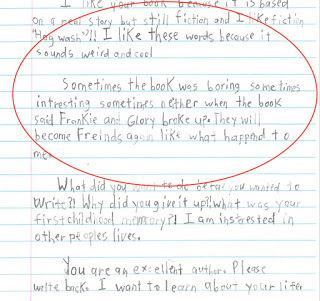 I like your book because it is based
on a real story but still fiction and I like fiction
"Hog wash"!! I like these words because it
sounds weird and cool
Sometimes the book was boring sometimes
intresting sometimes nether when the book
said Frankie and Glory broke up. They will
become Freinds again like what happnd to
me.
What did you want to do befor you wanted to
write?! Why did you give it up?! What was your
first childhood memory?! I am instrested in
other peoples lives.
You are an excellent author. Please
write back. I want to learn about your life.